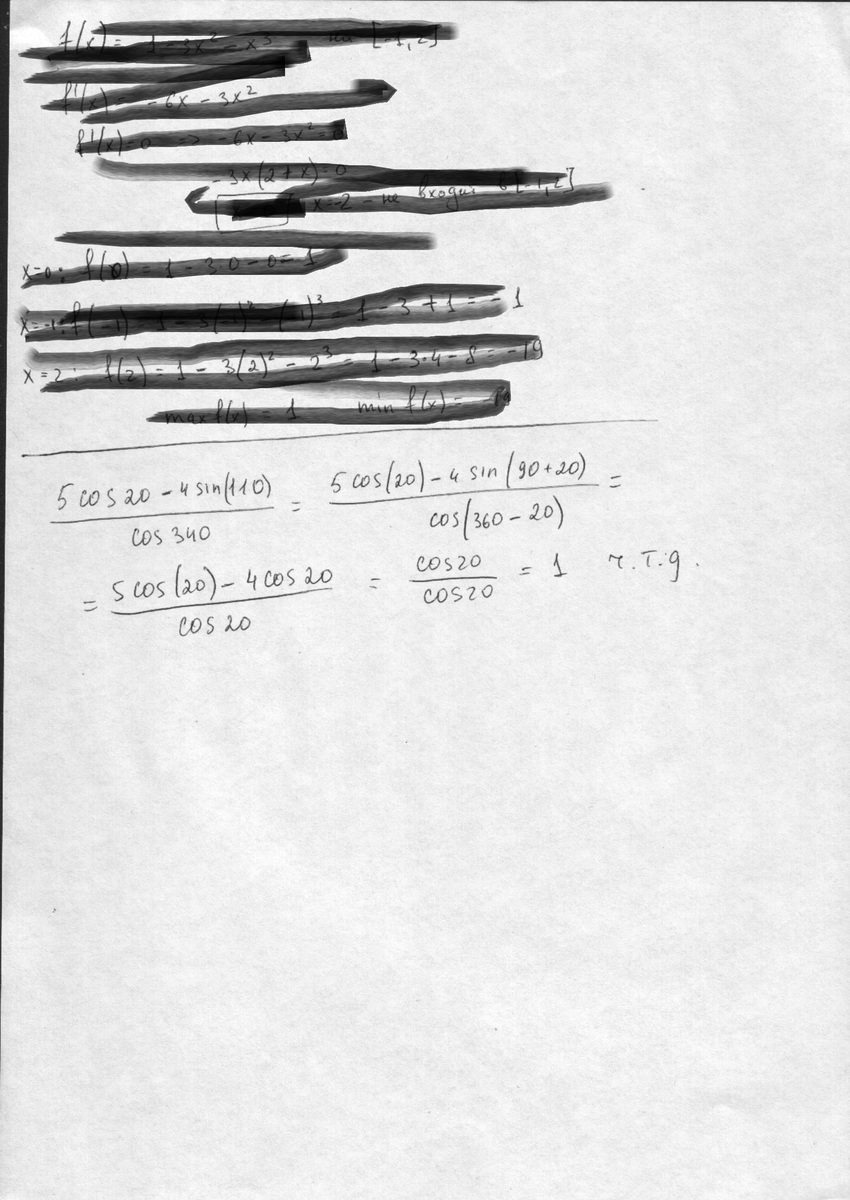 f(x) = 1 - 3x² - x³ на [-1,2]
f'(x) = -6x - 3x²
f'(x)=0 => -6x - 3x² = 0
-3x(2+x)=0
x=-2 - не входит в [-1,2]
x=0: f(0) = 1 - 3·0 - 0 = 1
x=-1: f(-1) = 1 - 3(-1)² - (-1)³ = 1 - 3 + 1 = -1
x=2: f(2) = 1 - 3(2)² - 2³ = 1 - 3·4 - 8 = -19
max f(x) = 1 min f(x) = -19
(5 cos 20 - 4 sin(110)) / cos 340 = (5 cos(20) - 4 sin(90+20)) / cos(360-20) =
= (5 cos(20) - 4 cos 20) / cos 20 = cos 20 / cos 20 = 1 ч.т.д.